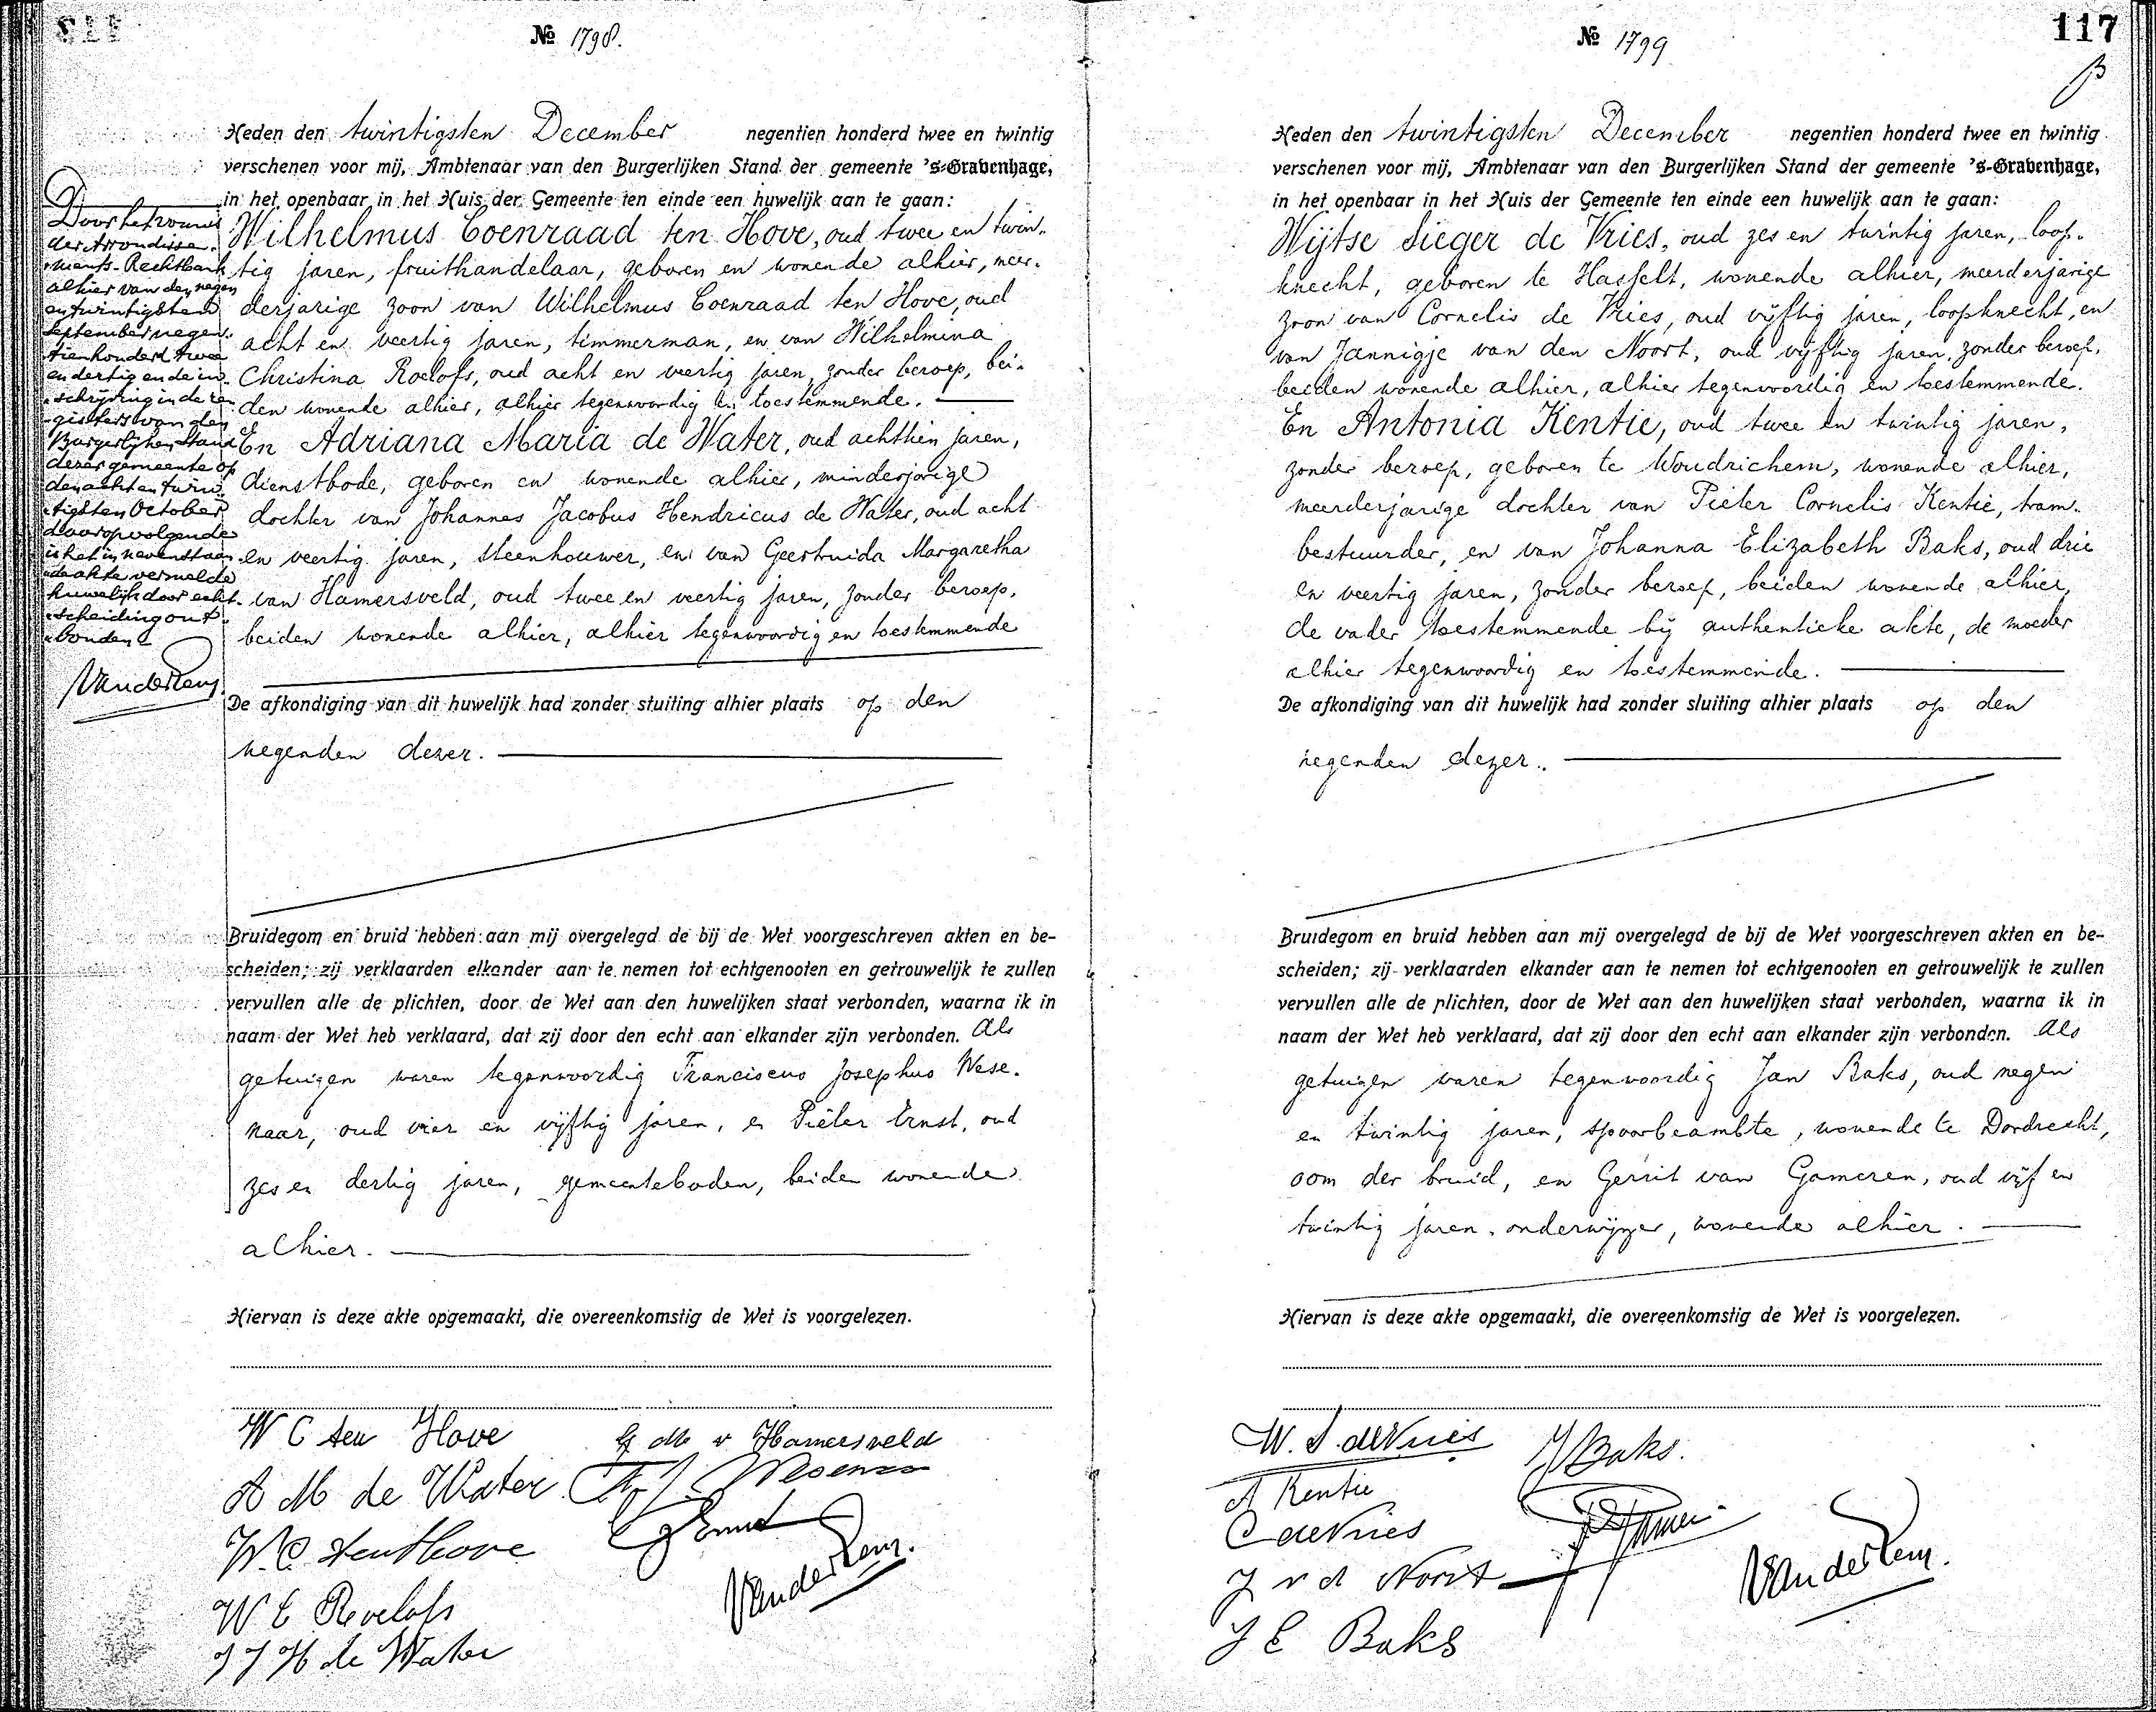 № 1798.
Heden den twintigsten December negentien honderd twee en twintig
verschenen voor mij, Ambtenaar van den Burgerlijken Stand der gemeente 's-Gravenhage,
in het openbaar in het Huis der Gemeente ten einde een huwelijk aan te gaan:
Wilhelmus Coenraad ten Hove, oud twee en twin-
tig jaren, fruithandelaar, geboren en wonende alhier, meer-
derjarige zoon van Wilhelmus Coenraad ten Hove, oud
acht en veertig jaren, timmerman, en van Wilhelmina
Christina Roelofs, oud acht en veertig jaren, zonder beroep, bei-
den wonende alhier, alhier tegenwoordig en toestemmende.
En Adriana Maria de Water, oud achttien jaren,
dienstbode, geboren en wonende alhier, minderjarige
dochter van Johannes Jacobus Hendricus de Water, oud acht
en veertig jaren, steenhouwer, en van Geertruida Margaretha
van Hamersveld, oud twee en veertig jaren, zonder beroep,
beiden wonende alhier, alhier tegenwoordig en toestemmende
De afkondiging van dit huwelijk had zonder stuiting alhier plaats op den
negenden dezer.
Bruidegom en bruid hebben aan mij overgelegd de bij de Wet voorgeschreven akten en be-
scheiden; zij verklaarden elkander aan te nemen tot echtgenooten en getrouwelijk te zullen
vervullen alle de plichten, door de Wet aan den huwelijken staat verbonden, waarna ik in
naam der Wet heb verklaard, dat zij door den echt aan elkander zijn verbonden. Als
getuigen waren tegenwoordig Franciscus Josephus Wese-
naar, oud vier en vijftig jaren, en Pieter Ernst, oud
zes en dertig jaren, gemeenteboden, beiden wonende
alhier.
Hiervan is deze akte opgemaakt, die overeenkomstig de Wet is voorgelezen.
Door het vonnis
der Arrondisse-
ments-Rechtbank
alhier van den negen
en twintigsten
September negen-
tienhonderd twee
en dertig en de in-
schrijving in de re-
gisters van den
Burgerlijken Stand
dezer gemeente op
den acht en twin-
tigsten October
daaropvolgende
is het in nevenstaan-
de akte vermelde
huwelijk door echt-
scheiding ont-
bonden.
W C ten Hove
A M de Water
W.C. ten Hove
W C Roelofs
J J H de Water
G M v Hamersveld
№ 1799
117
Heden den twintigsten December negentien honderd twee en twintig
verschenen voor mij, Ambtenaar van den Burgerlijken Stand der gemeente 's-Gravenhage,
in het openbaar in het Huis der Gemeente ten einde een huwelijk aan te gaan:
Wijtse Sieger de Vries, oud zes en twintig jaren, loop-
knecht, geboren te Hasselt, wonende alhier, meerderjarige
zoon van Cornelis de Vries, oud vijftig jaren, loopknecht, en
van Jannigje van den Noort, oud vijftig jaren, zonder beroep,
beiden wonende alhier, alhier tegenwoordig en toestemmende.
En Antonia Kentie, oud twee en twintig jaren,
zonder beroep, geboren te Woudrichem, wonende alhier,
meerderjarige dochter van Pieter Cornelis Kentie, tram-
bestuurder, en van Johanna Elizabeth Baks, oud drie
en veertig jaren, zonder beroep, beiden wonende alhier,
de vader toestemmende bij authentieke akte, de moeder
alhier tegenwoordig en toestemmende.
De afkondiging van dit huwelijk had zonder stuiting alhier plaats op den
negenden dezer.
Bruidegom en bruid hebben aan mij overgelegd de bij de Wet voorgeschreven akten en be-
scheiden; zij verklaarden elkander aan te nemen tot echtgenooten en getrouwelijk te zullen
vervullen alle de plichten, door de Wet aan den huwelijken staat verbonden, waarna ik in
naam der Wet heb verklaard, dat zij door den echt aan elkander zijn verbonden. Als
getuigen waren tegenwoordig Jan Baks, oud negen
en twintig jaren, spoorbeambte, wonende te Dordrecht,
oom der bruid, en Gerrit van Gameren, oud vijf en
twintig jaren, onderwijzer, wonende alhier.
Hiervan is deze akte opgemaakt, die overeenkomstig de Wet is voorgelezen.
W. S. de Vries
A Kentie
C de Vries
J v d Noort
J E Baks
J Baks.